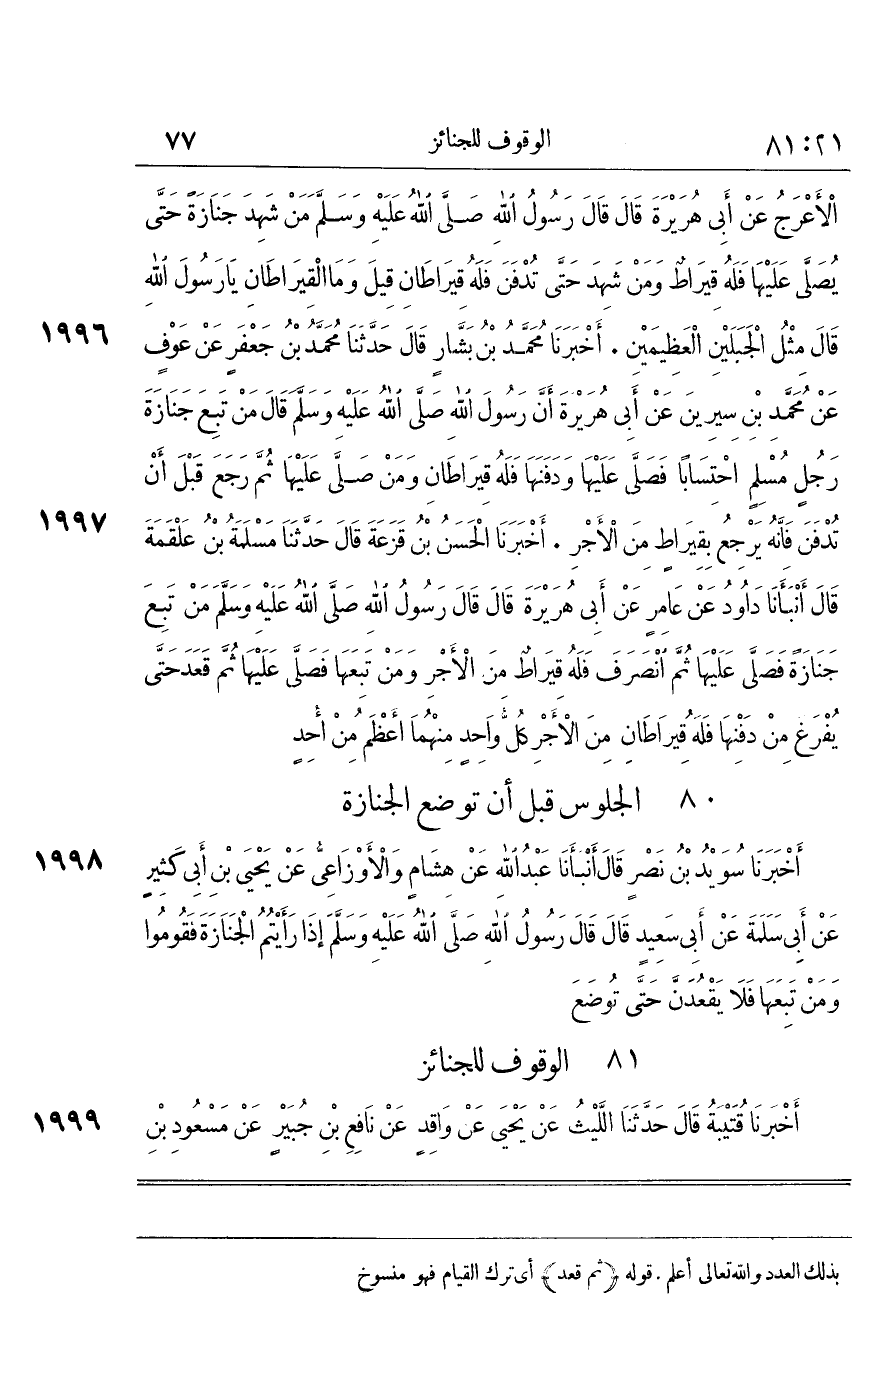 ٢١ : ٨١ الوقوف للجنائز ٧٧
الْأَعْرَجُ عَنْ أَبِى هُرَيْرَةَ قَالَ قَالَ رَسُولُ اللهِ صَلَّى اللهُ عَلَيْهِ وَسَلَّمَ مَنْ شَهِدَ جَنَازَةً حَتَّى
يُصَلَّى عَلَيْهَا فَلَهُ قِيرَاطٌ وَمَنْ شَهِدَ حَتَّى تُدْفَنَ فَلَهُ قِيرَاطَانِ قِيلَ وَمَا الْقِيرَاطَانِ يَا رَسُولَ اللهِ
قَالَ مِثْلُ الْجَبَلَيْنِ الْعَظِيمَيْنِ . أَخْبَرَنَا مُحَمَّدُ بْنُ بَشَّارٍ قَالَ حَدَّثَنَا مُحَمَّدُ بْنُ جَعْفَرٍ عَنْ عَوْفٍ ١٩٩٦
عَنْ مُحَمَّدِ بْنِ سِيرِينَ عَنْ أَبِى هُرَيْرَةَ أَنَّ رَسُولَ اللهِ صَلَّى اللهُ عَلَيْهِ وَسَلَّمَ قَالَ مَنْ تَبِعَ جَنَازَةَ
رَجُلٍ مُسْلِمٍ احْتِسَابًا فَصَلَّى عَلَيْهَا وَدَفَنَهَا فَلَهُ قِيرَاطَانِ وَمَنْ صَلَّى عَلَيْهَا ثُمَّ رَجَعَ قَبْلَ أَنْ
تُدْفَنَ فَإِنَّهُ يَرْجِعُ بِقِيرَاطٍ مِنَ الْأَجْرِ . أَخْبَرَنَا الْحَسَنُ بْنُ قَزَعَةَ قَالَ حَدَّثَنَا مَسْلَمَةُ بْنُ عَلْقَمَةَ ١٩٩٧
قَالَ أَنْبَأَنَا دَاوُدُ عَنْ عَامِرٍ عَنْ أَبِى هُرَيْرَةَ قَالَ قَالَ رَسُولُ اللهِ صَلَّى اللهُ عَلَيْهِ وَسَلَّمَ مَنْ تَبِعَ
جَنَازَةً فَصَلَّى عَلَيْهَا ثُمَّ انْصَرَفَ فَلَهُ قِيرَاطٌ مِنَ الْأَجْرِ وَمَنْ تَبِعَهَا فَصَلَّى عَلَيْهَا ثُمَّ قَعَدَ حَتَّى
يُفْرَغَ مِنْ دَفْنِهَا فَلَهُ قِيرَاطَانِ مِنَ الْأَجْرِ كُلُّ وَاحِدٍ مِنْهُمَا أَعْظَمُ مِنْ أُحُدٍ
٨٠ الجلوس قبل أن توضع الجنازة
أَخْبَرَنَا سُوَيْدُ بْنُ نَصْرٍ قَالَ أَنْبَأَنَا عَبْدُ اللهِ عَنْ هِشَامٍ وَالْأَوْزَاعِىُّ عَنْ يَحْيَى بْنِ أَبِى كَثِيرٍ ١٩٩٨
عَنْ أَبِى سَلَمَةَ عَنْ أَبِى سَعِيدٍ قَالَ قَالَ رَسُولُ اللهِ صَلَّى اللهُ عَلَيْهِ وَسَلَّمَ إِذَا رَأَيْتُمُ الْجَنَازَةَ فَقُومُوا
وَمَنْ تَبِعَهَا فَلَا يَقْعُدَنَّ حَتَّى تُوضَعَ
٨١ الوقوف للجنائز
أَخْبَرَنَا قُتَيْبَةُ قَالَ حَدَّثَنَا اللَّيْثُ عَنْ يَحْيَى عَنْ وَاقِدٍ عَنْ نَافِعِ بْنِ جُبَيْرٍ عَنْ مَسْعُودِ بْنِ ١٩٩٩
بذلك العدد والله تعالى أعلم . قوله ﴿ثم قعد﴾ أى ترك القيام فهو منسوخ